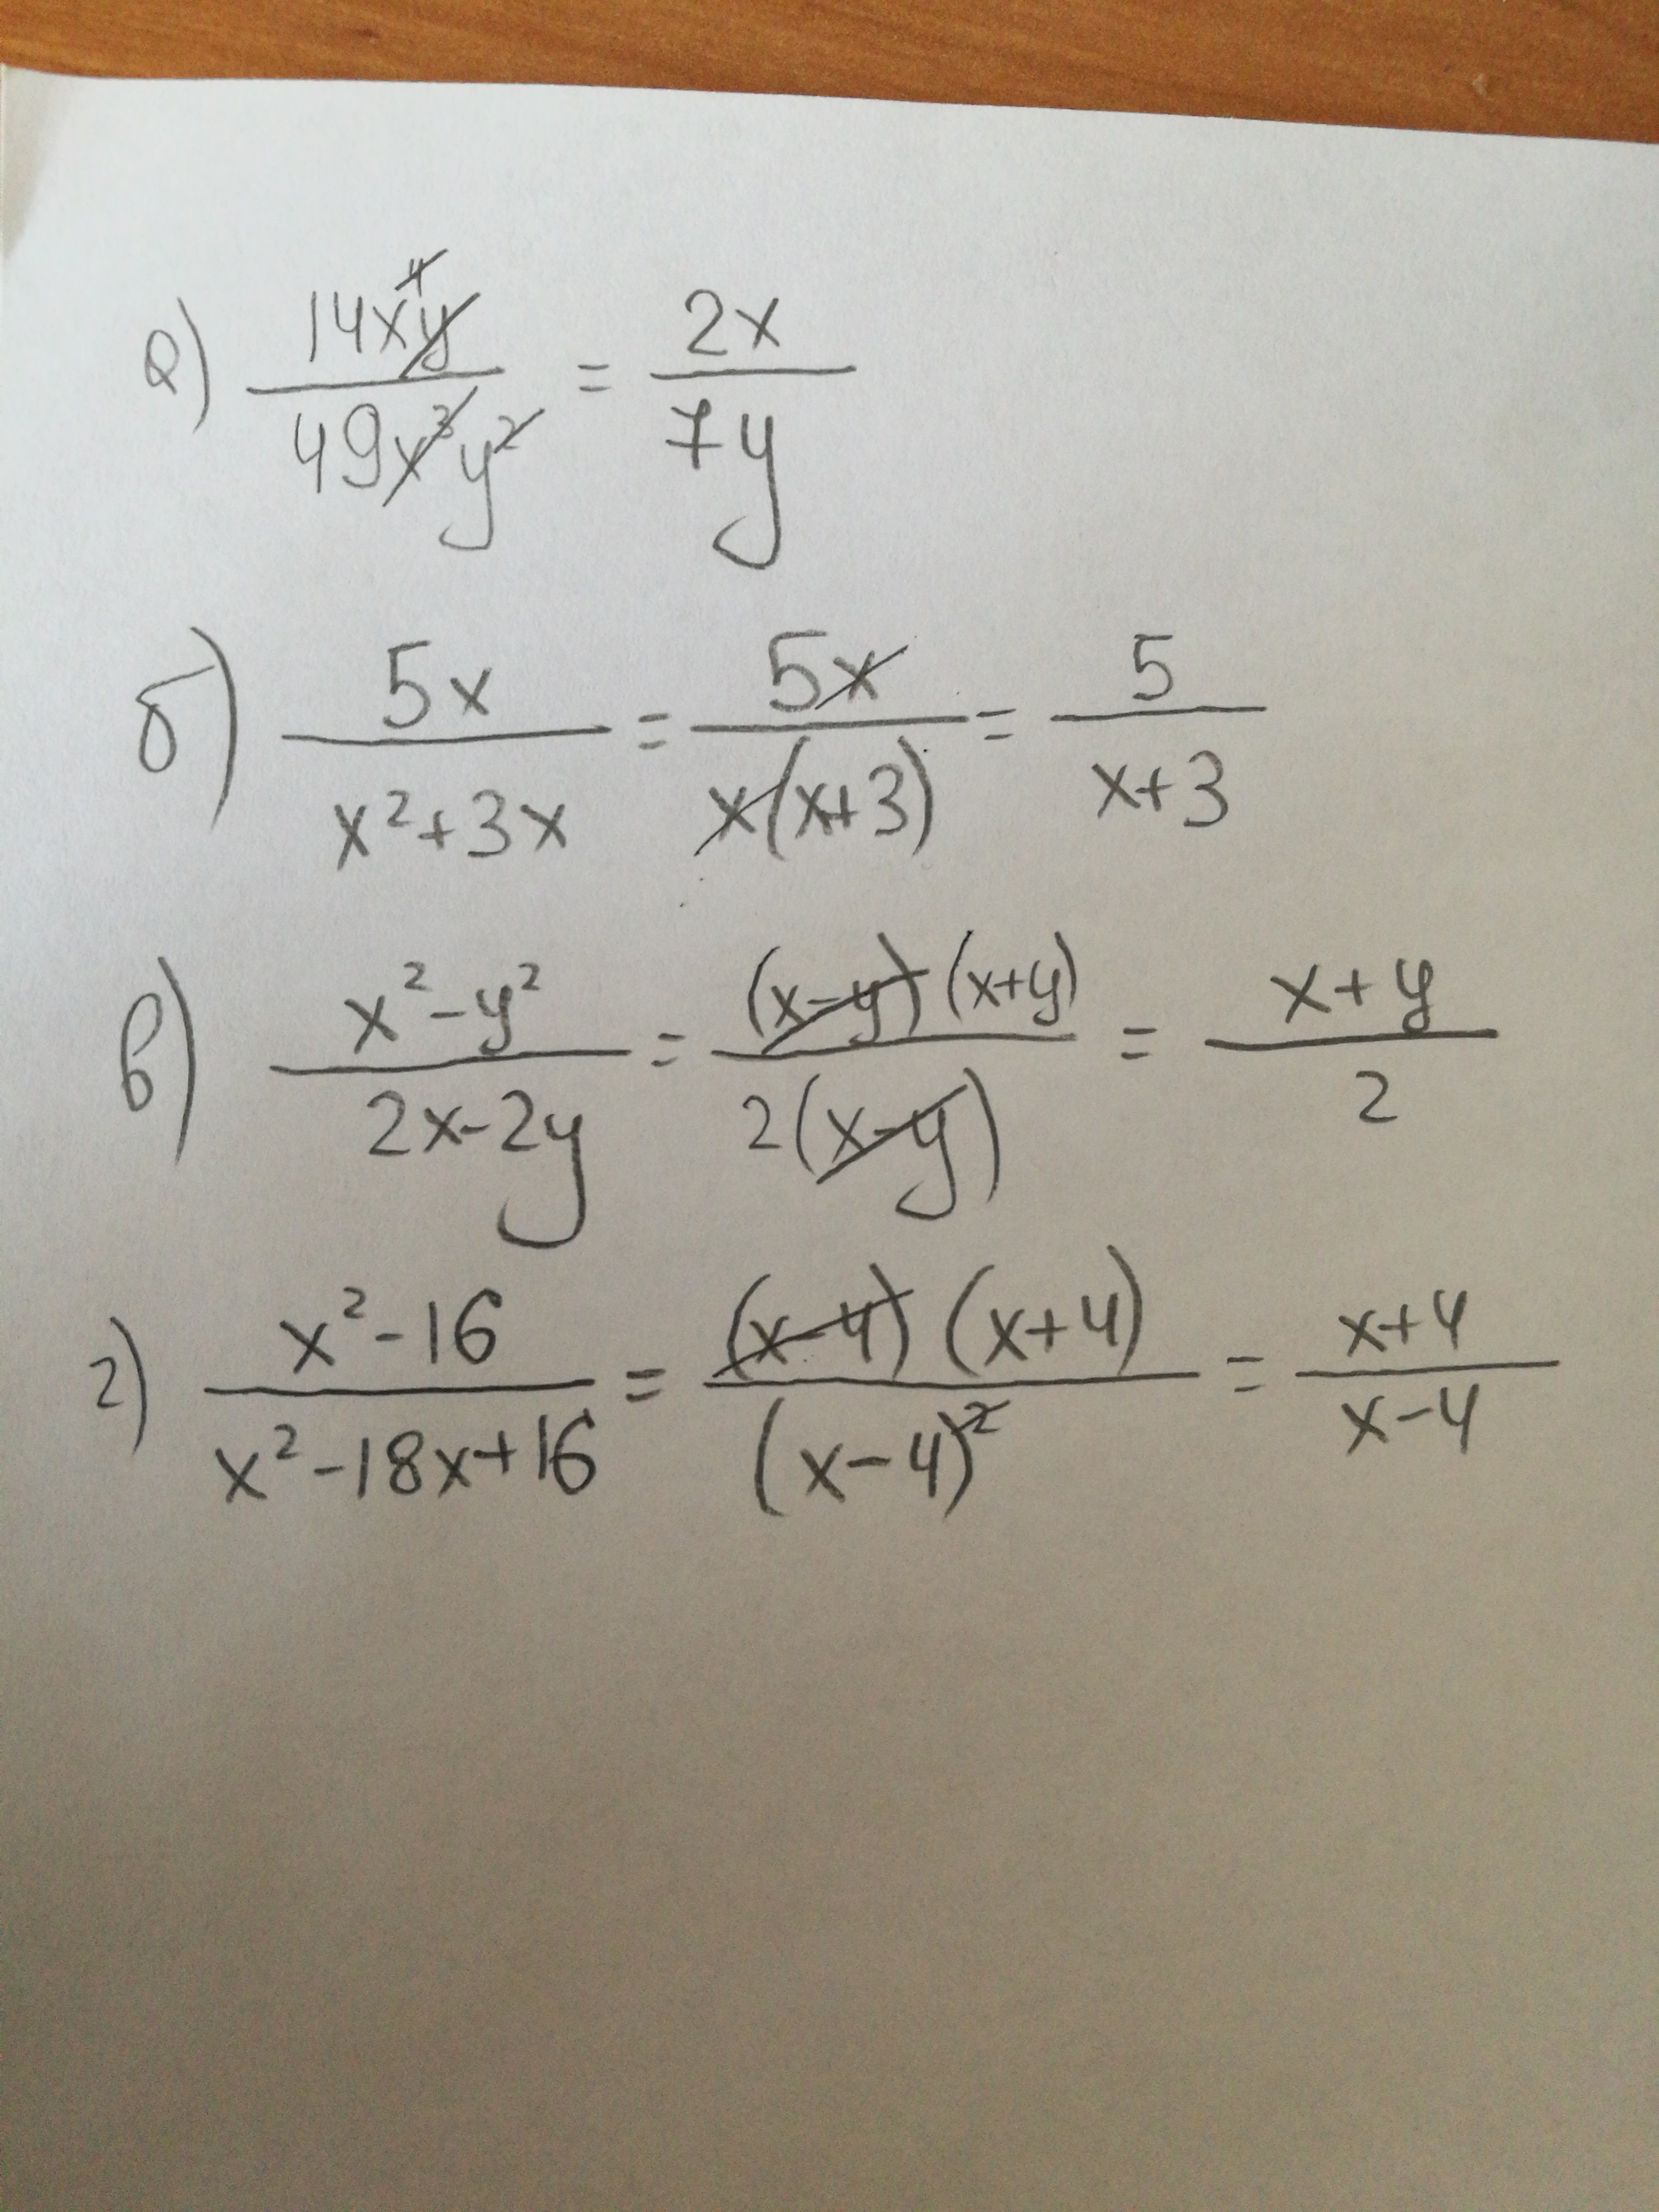 а) 14x⁴y / 49x³y² = 2x / 7y
б) 5x / x²+3x = 5x / x(x+3) = 5 / x+3
в) x²-y² / 2x-2y = (x-y)(x+y) / 2(x-y) = x+y / 2
г) x²-16 / x²-18x+16 = (x-4)(x+4) / (x-4)² = x+4 / x-4